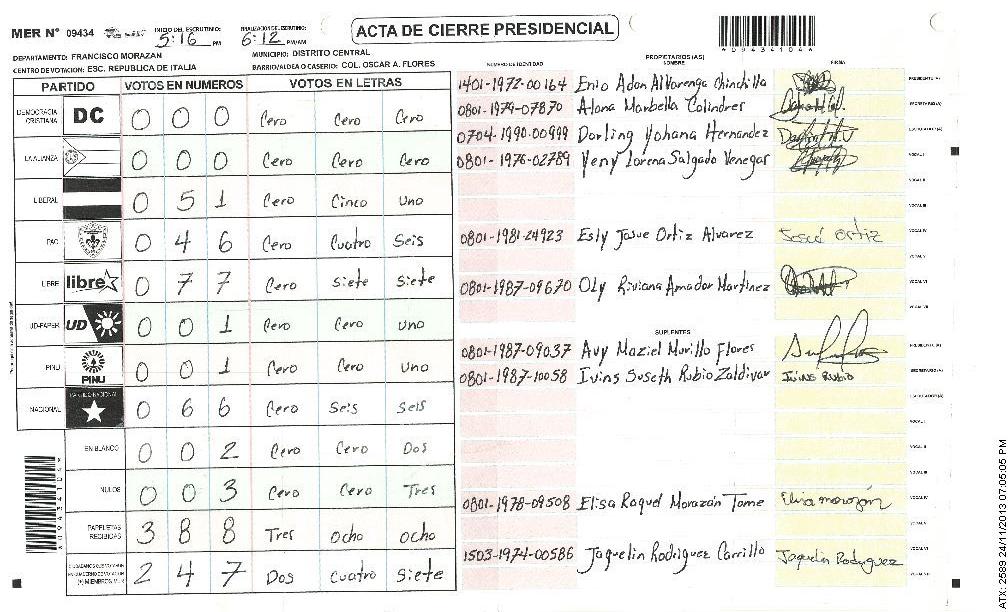 ACTA DE CIERRE PRESIDENCIAL
MER N° 09434
INICIO DEL ESCRUTINIO: 5:16 PM
FINALIZACION DEL ESCRUTINIO: 6:12 PM/AM
DEPARTAMENTO: FRANCISCO MORAZAN
MUNICIPIO: DISTRITO CENTRAL
CENTRO DE VOTACION: ESC. REPUBLICA DE ITALIA
BARRIO/ALDEA O CASERIO: COL. OSCAR A. FLORES
PARTIDO VOTOS EN NUMEROS VOTOS EN LETRAS
DEMOCRACIA CRISTIANA DC 0 0 0 Cero Cero Cero
LA ALIANZA 0 0 0 Cero Cero Cero
LIBERAL 0 5 1 Cero Cinco uno
PAC 0 4 6 Cero Cuatro Seis
LIBRE libre 0 7 7 Cero Siete Siete
UD-FAPER UD 0 0 1 Cero Cero uno
PINU PINU 0 0 1 Cero Cero uno
NACIONAL PARTIDO NACIONAL 0 6 6 Cero Seis Seis
EN BLANCO 0 0 2 Cero Cero Dos
NULOS 0 0 3 Cero Cero Tres
PAPELETAS RECIBIDAS 3 8 8 Tres ocho ocho
2 4 7 Dos cuatro Siete
PROPIETARIOS (AS)
NUMERO DE IDENTIDAD NOMBRE FIRMA
1401-1972-00164 Enio Adan Alvarenga Chinchilla PRESIDENTE (A)
0801-1979-07870 Alana Marbella Colindres SECRETARIO (A)
0704-1990-00999 Dorling Yohana Hernandez ESCRUTADOR (A)
0801-1976-02789 Yeny Lorena Salgado Venegar VOCAL I
VOCAL II
VOCAL III
0801-1981-24923 Esly Josue Ortiz Alvarez Josué Ortiz VOCAL IV
VOCAL V
0801-1987-09670 Oly Riviana Amador Martinez VOCAL VI
VOCAL VII
SUPLENTES
0801-1987-09037 Avy Maziel Murillo Flores PRESIDENTE (A)
0801-1987-10058 Ivins Suseth Rubio Zaldivar Ivins Rubio SECRETARIO (A)
ESCRUTADOR (A)
VOCAL I
VOCAL II
VOCAL III
0801-1978-09508 Elisa Raquel Morazán Tome Elisa morazán VOCAL IV
VOCAL V
1503-1974-00586 Jaquelin Rodriguez Carrillo Jaquelin Rodriguez VOCAL VI
VOCAL VII
ATX: 2589 24/11/2013 07:05:05 PM